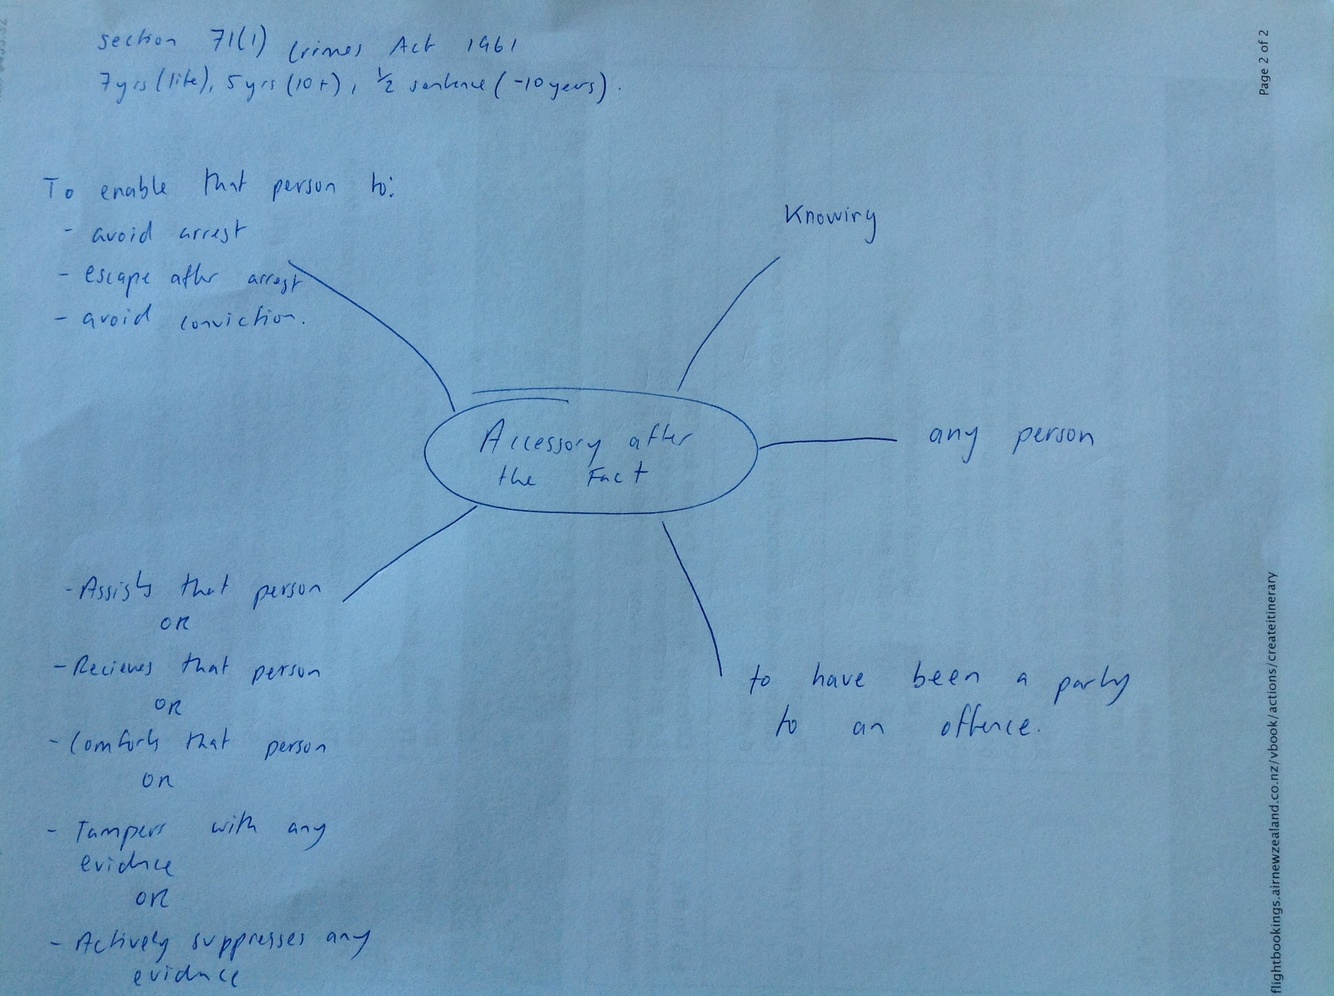 section 71(1) Crimes Act 1961
7yrs (life), 5yrs (10+), ½ sentence (-10 years).
To enable that person to:
- avoid arrest
- escape after arrest
- avoid conviction.
Knowing
any person
Accessory after
the Fact
to have been a party
to an offence.
- Assists that person
OR
- Recieves that person
OR
- Comforts that person
OR
- Tampers with any
evidence
OR
- Actively suppresses any
evidence
Page 2 of 2
flightbookings.airnewzealand.co.nz/vbook/actions/createitinerary